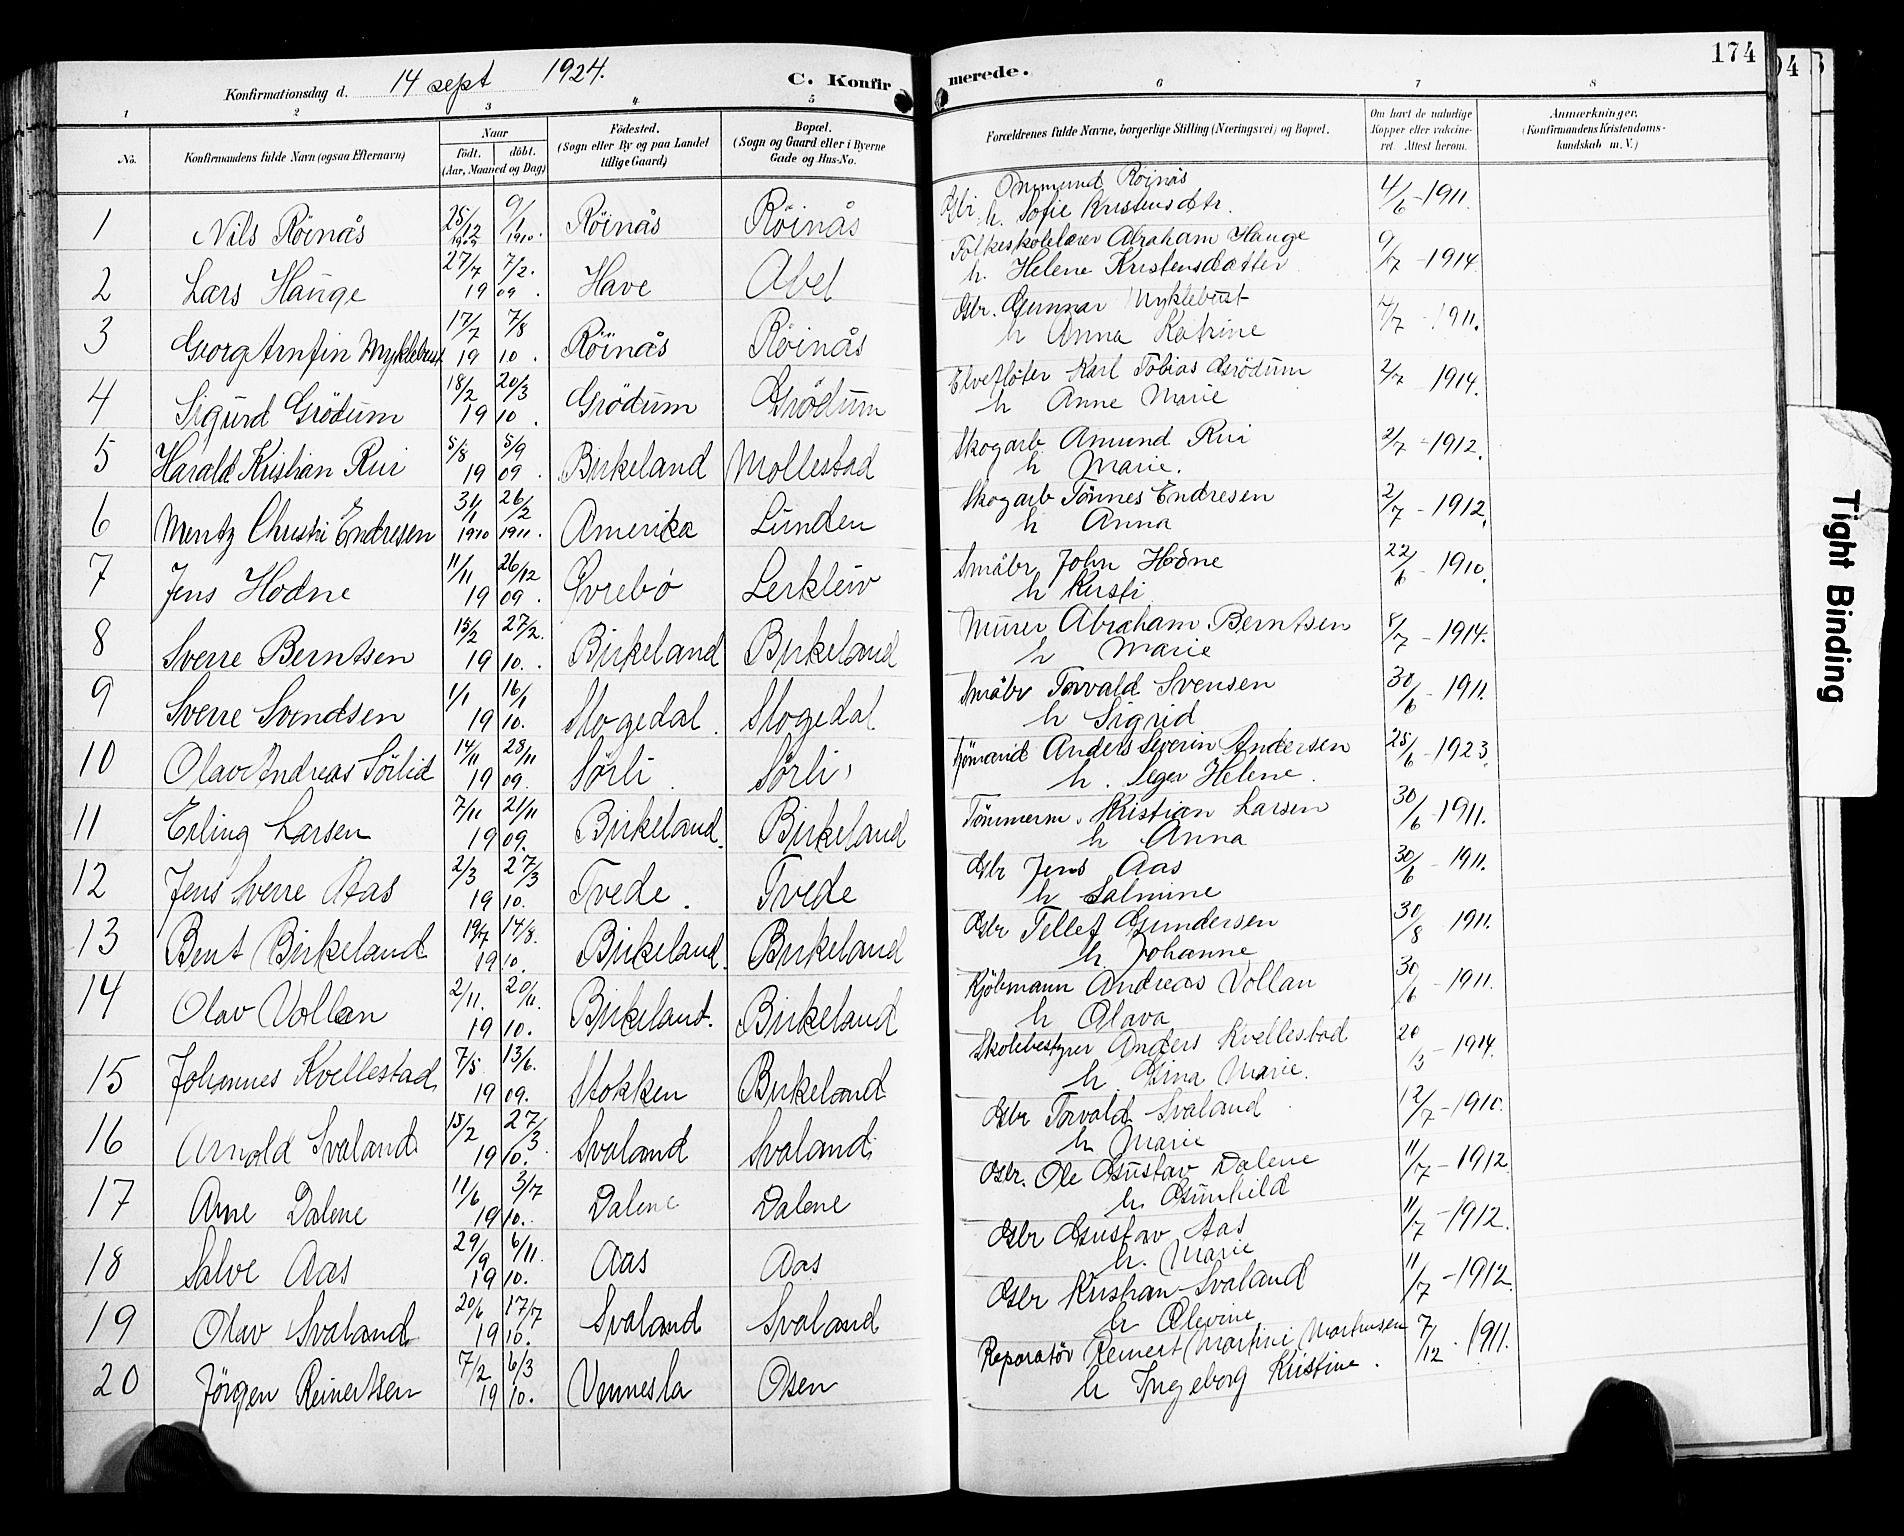 174
Konfirmationsdag d. 14 sept 1924. C. Konfirmerede.
1 2 3 4 5 6 7 8
No. Konfirmandens fulde Navn (ogsaa Efternavn) Naar födt. döbt. (Aar, Maaned og Dag) Födested. (Sogn eller By og paa Landet tillige Gaard) Bopæl. (Sogn og Gaard eller i Byerne Gade og Hus-No. Forældrenes fulde Navne, borgerlige Stilling (Næringsvei) og Bopæl. Om havt de naturlige Kopper eller vaccineret. Attest herom. Anmærkninger. (Konfirmandens Kristendomskundskab m. V.)
1 Nils Röinås 25/12 1909 9/1 1910. Röinås Röinås Gbr. Ommund Röinås 4/6-1911.
h. Sofie Kristensdtr.
2 Lars Hauge 27/7 7/2. 1909. Have Abel Folkeskolelærer Abraham Hauge 9/7-1914
h. Helene Kristensdatter
3 Georg Arnfin Myklebust 17/7 7/8 1910. Röinås Röinås Gbr. Gunnar Myklebust 4/7-1911.
h Anna Katrine
4 Sigurd Grödum 18/2 20/3 1910. Grödum Grödum Elvefløter Karl Tobias Grödum 2/7 1914.
h Anne Marie
5 Harald Kristian Rui 5/8 5/9 1909. Birkeland Mollestad Skogarb Amund Rui 2/7-1912.
h Marie.
6 Mentz Christi Endresen 3/11 1910 26/2 1911. Amerika Lunden Skogarb Tönnes Endresen 2/7-1912.
h Anna
7 Jens Hodne 11/11 26/12 1909. Øvrebö Lerkleiv Småbr John Hodne 22/6-1910.
h Kirsti
8 Sverre Berntsen 15/2 27/2. 1910. Birkeland Birkeland Murer Abraham Berntsen 8/7-1914.
h Marie
9 Sverre Svendsen 1/1 16/1 1910. Stogedal. Stogedal Småbr Torvald Svensen 30/6-1911.
h Sigrid
10 Olav Andreas Sörlid 14/11 28/11 1909. Sørli. Sørli Sjömand Anders Severin Andersen 25/6-1923.
h. Seger Helene.
11 Erling Larsen 7/11 21/11 1909. Birkeland. Birkeland Tömmerm. Kristian Larsen 30/6-1911.
h Anna
12 Jens Sverre Aas 2/3 27/3 1910. Tvede. Tvede Gbr Jens Aas 30/6-1911.
h Salmine
13 Bent Birkeland 19/7 14/8. 1910. Birkeland. Birkeland Gbr Tellef Gundersen 30/8 1911.
h Johanne
14 Olav Vollan 2/11. 20/11. 1910. Birkeland. Birkeland Kjöbmann Andreas Vollan 30/6-1911.
h Olava
15 Johannes Kvellestad 7/5 13/6. 1909. Stokken Birkeland Skolebestyrer Anders Kvellestad 20/3-1914.
h. Gina Marie.
16 Arnold Svaland 15/2 27/3 1910. Svaland Svaland Gbr Torvald Svaland 12/7-1910.
h Marie
17 Arne Dalene 11/6 3/7 1910. Dalene Dalene Gbr. Ole Gustav Dalene 11/7-1912.
h. Gunhild
18 Salve Aas 29/9 6/11. 1910. Aas Aas Gbr Gustav Aas 11/7-1912.
h. Marie
19 Olav Svaland 20/6 17/7 1910. Svaland Svaland Gbr Kristian Svaland 11/7-1912.
h Olevine
20 Jörgen Reinertsen 7/2 6/3 1910. Vennesla Osen Reparatör Reinert (Martini) Mortensen 7/12. 1911.
h Ingeborg Kristine.
Tight Binding